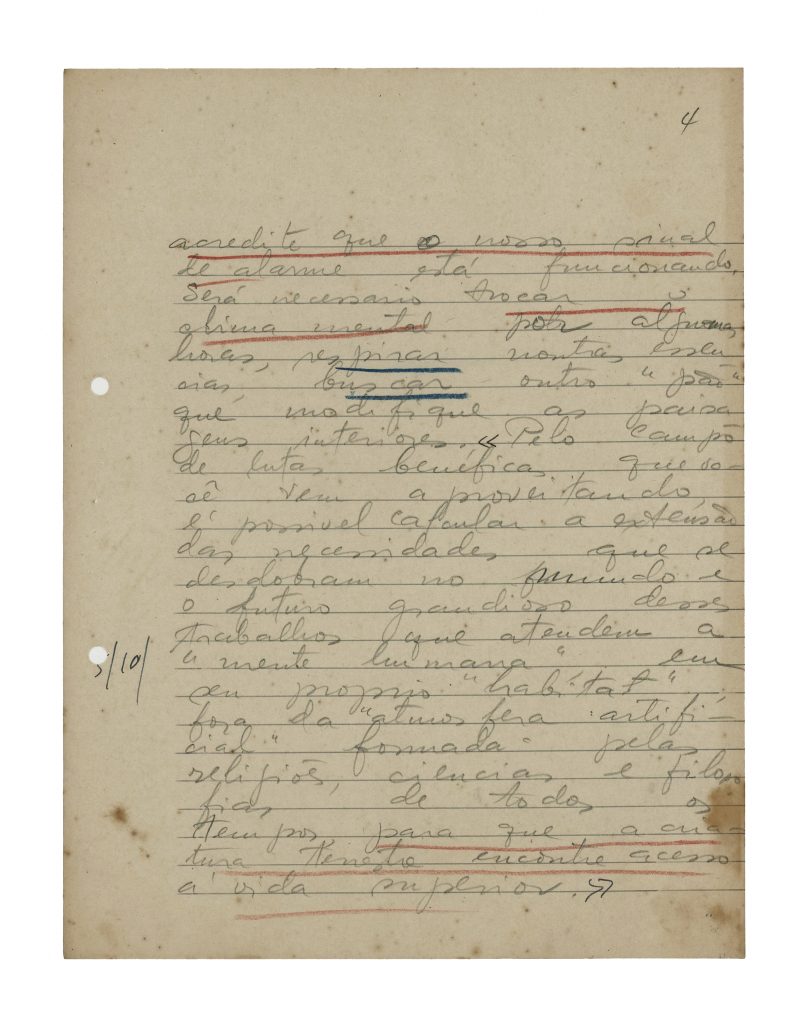 4
acredite que o nosso sinal
de alarme está funcionando.
Será necessario trocar o
clima mental por algumas
horas, respirar noutras essen
cias, buscar outro "pão"
que modifique as paisa
gens interiores. « Pelo campo
de lutas benéficas que vo-
cê vem aproveitando,
é possivel calcular a extensão
das necessidades que se
desdobram no mundo e
o futuro grandioso desses
trabalhos que atendem a
"mente humana" em
seu proprio "habitat",
fora da "atmosfera artifi-
cial" formada pelas
religiões, ciencias e filoso
fias de todos os
tempos para que a cria-
tura terrestre encontre acesso
á vida superior. »
/10/